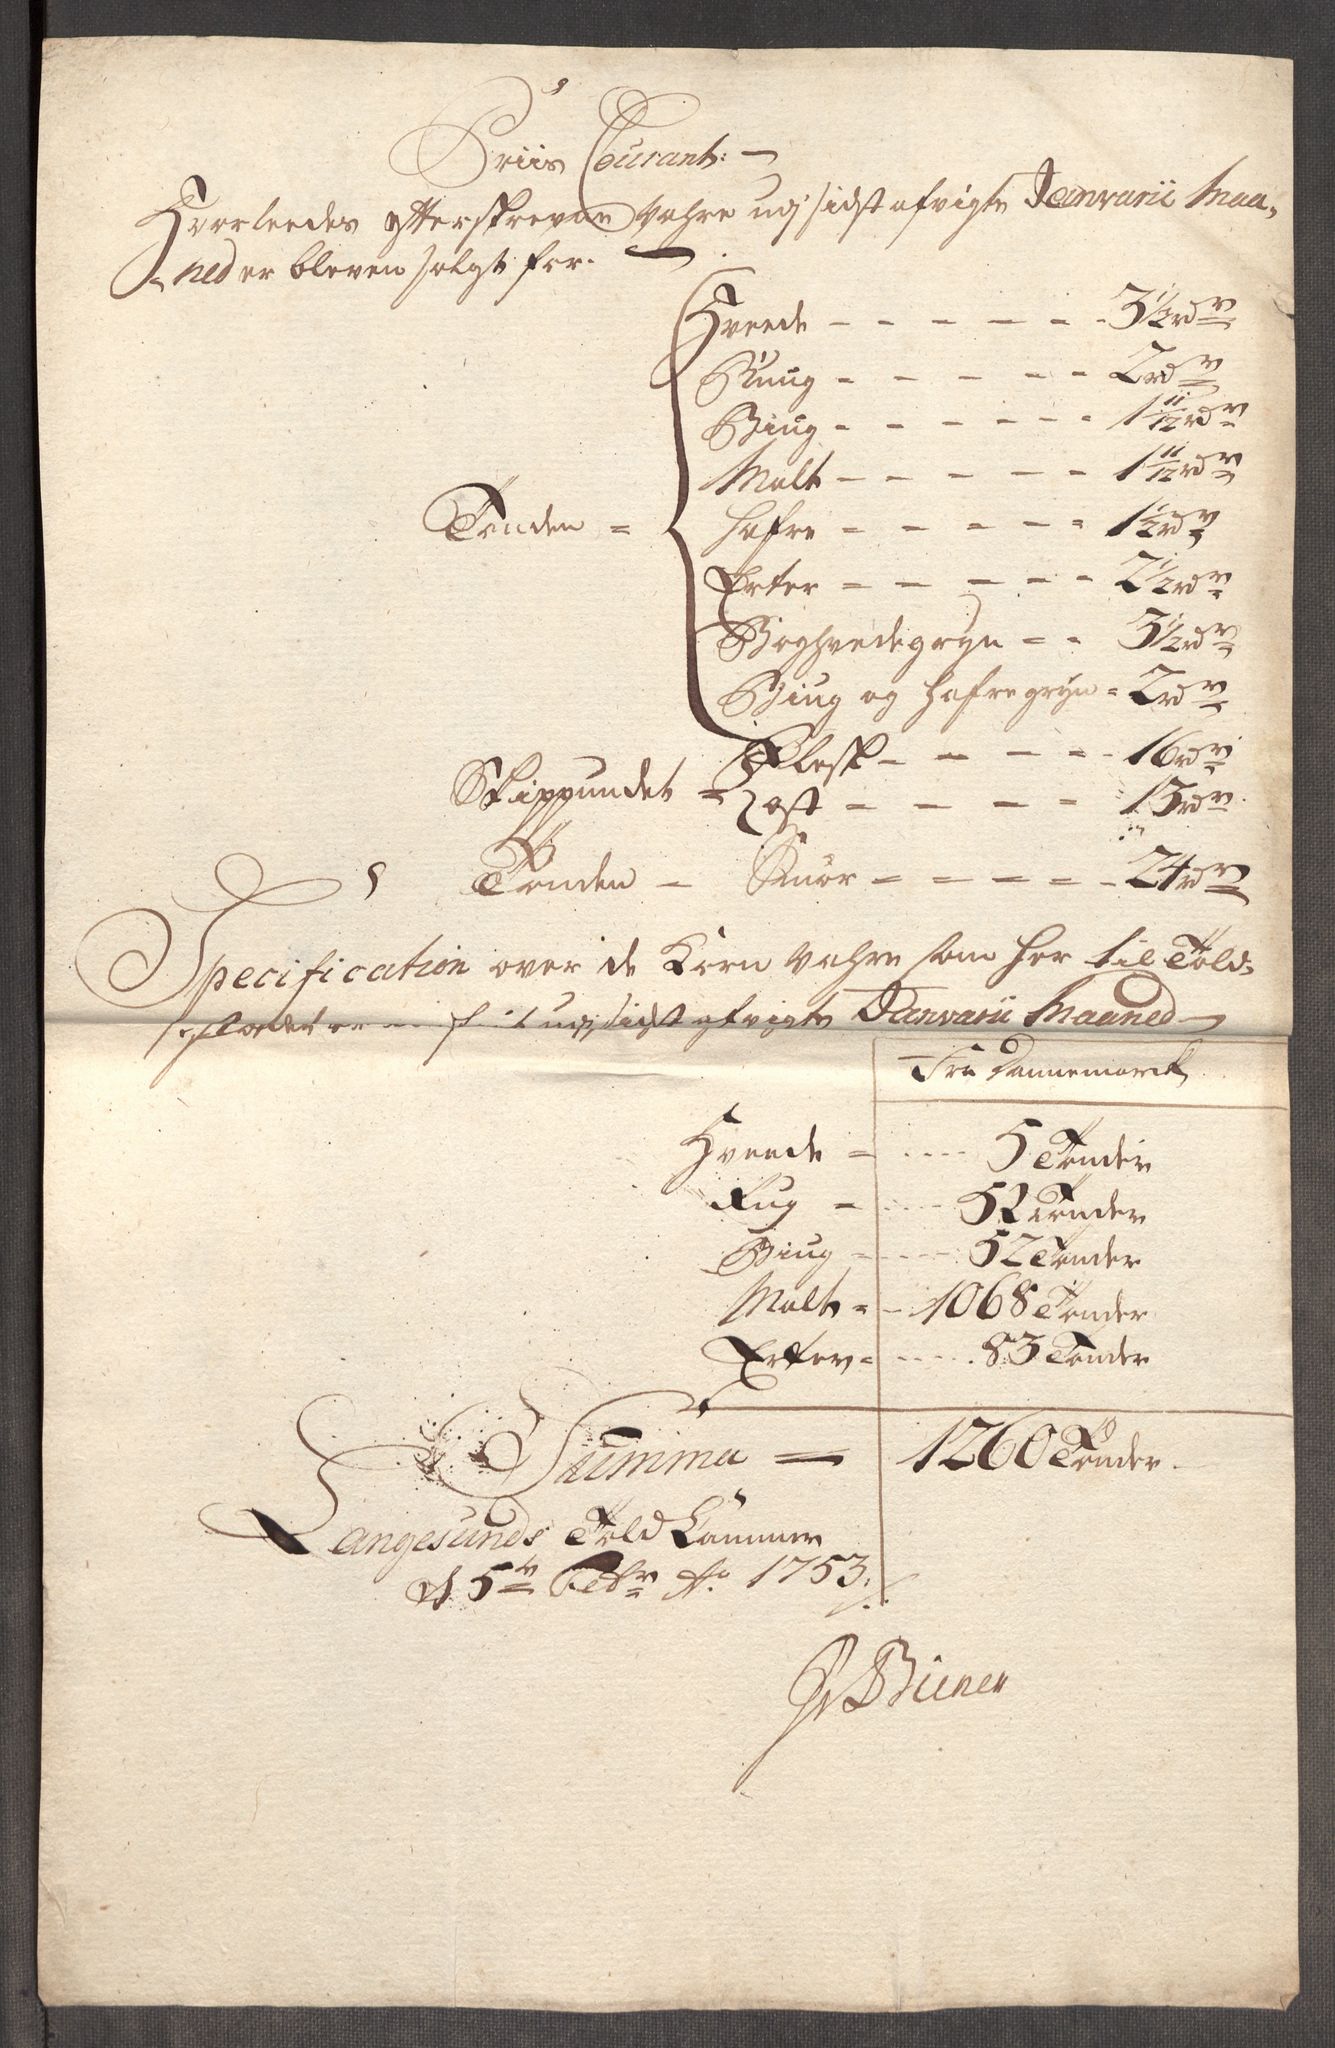 Priis Courant:
Hvorleedes efterskrevne Vahre udj sidst afvigte Janvarii Maa-
ned er bleven solgt for.
Hveede - - - - - - 3½ rdr
Ruug - - - - - 2 rdr
Biug - - - - - - 1 11/12 rdr
Malt - - - - - 1 11/12 rdr
Tønden = hafre - - - - - 1½ rdr
Erter - - - - - 2½ rdr
Boghvedegryn - - 3½ rdr
Biug og hafregryn = 2 rdr
Skippundet = Flesk - - - - - 16 rdr
ost - - - - 13 rdr
Tønden - Smør - - - - - 24 rdr
Specification over de Korn Vahre som her til Told-
stædet er udj sidst afvigte Janvarii Maaned
Fra Dannemarck
Hveede = - - - - 5 Tønder
Rug = - - - - 52 Tønder
Biug = - - - - 52 Tønder
Malt = - 1068 Tønder
Erter = - - - - 83 Tønder
Summa = 1260 Tønder.
Langesunds Told Kammer
d 5te Febr Ao 1753.